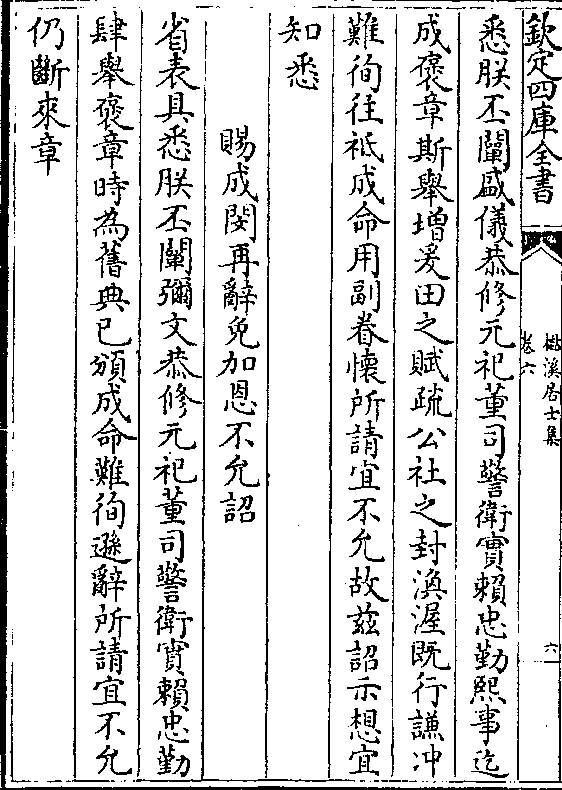 欽定四庫全書
樾溪居士集
卷六
六
悉朕丕闡盛儀恭修元祀董司警衛實賴忠勤熙事迄
成褒章斯舉增爰田之賦疏公社之封渙渥既行謙冲
難徇往祗成命用副眷懷所請宜不允故兹詔示想宜
知悉
賜成閔再辭免加恩不允詔
省表具悉朕丕闡彌文恭修元祀董司警衛實賴忠勤
肆舉褒章時為舊典已頒成命難徇遜辭所請宜不允
仍斷來章